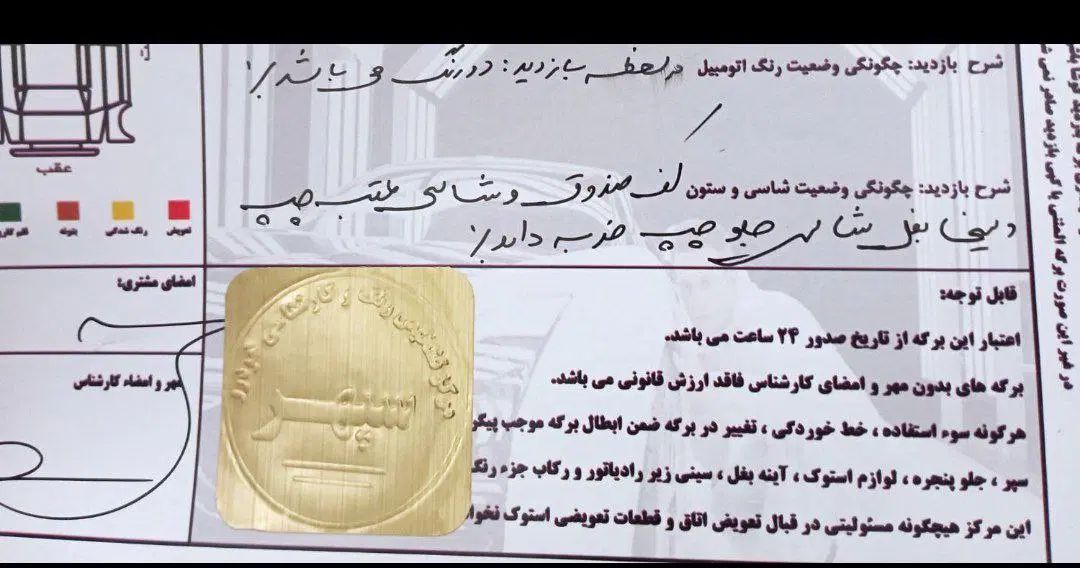 شرح بازدید: چگونگی وضعیت رنگ اتومبیل در لحظه بازدید: دورنگ می باشد
شرح بازدید: چگونگی وضعیت شاسی و ستون کف صندوق و شاسی عقب چپ
و سینی بغل شاسی جلو چپ ضربه دارد
عقب
تعویض
رنگ شدگی
بتونه
امضای مشتری:
مهر و امضاء کارشناس
قابل توجه:
اعتبار این برگه از تاریخ صدور ۲۴ ساعت می باشد.
برگه های بدون مهر و امضای کارشناس فاقد ارزش قانونی می باشد.
هرگونه سوء استفاده ، خط خوردگی ، تغییر در برگه ضمن ابطال برگه موجب
سپر ، جلو پنجره ، لوازم استوک ، آینه بغل ، سینی زیر رادیاتور و رکاب جزء
این مرکز هیچگونه مسئولیتی در قبال تعویض اتاق و قطعات تعویضی استوک
مرکز تشخیص رنگ و کارشناسی خودرو
سپهر
در غیر این صورت برگه المثنی یا کپی بازدید صادر نمی